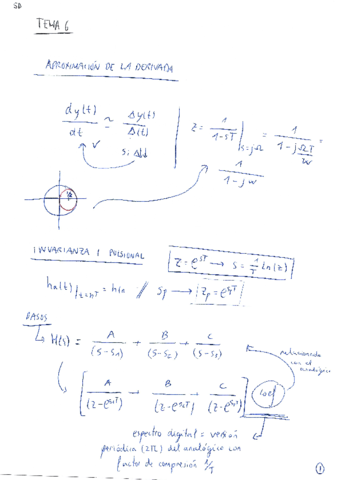 TEMA 6
APROXIMACIÓN DE LA DERIVADA
dy(t)/dt ≃ Δy(t)/Δ(t) | z = 1/(1-sT) |s=jΩ = 1/(1-jΩT) =
si Δ↓↓
W
1/(1-jw)
INVARIANZA IMPULSIONAL
z = e^sT → s = 1/T ln(z)
ha(t)/t=nT = h(n) // sp → zp = e^spT
PASOS
H(s) = A/(s-s1) + B/(s-s2) + C/(s-s3)
relacionado con el analógico
[A/(z-e^s1T) B/(z-e^s2T) C/(z-e^s3T)]
espectro digital = versión
periódica (2π) del analógico con
factor de compresión 1/T
1